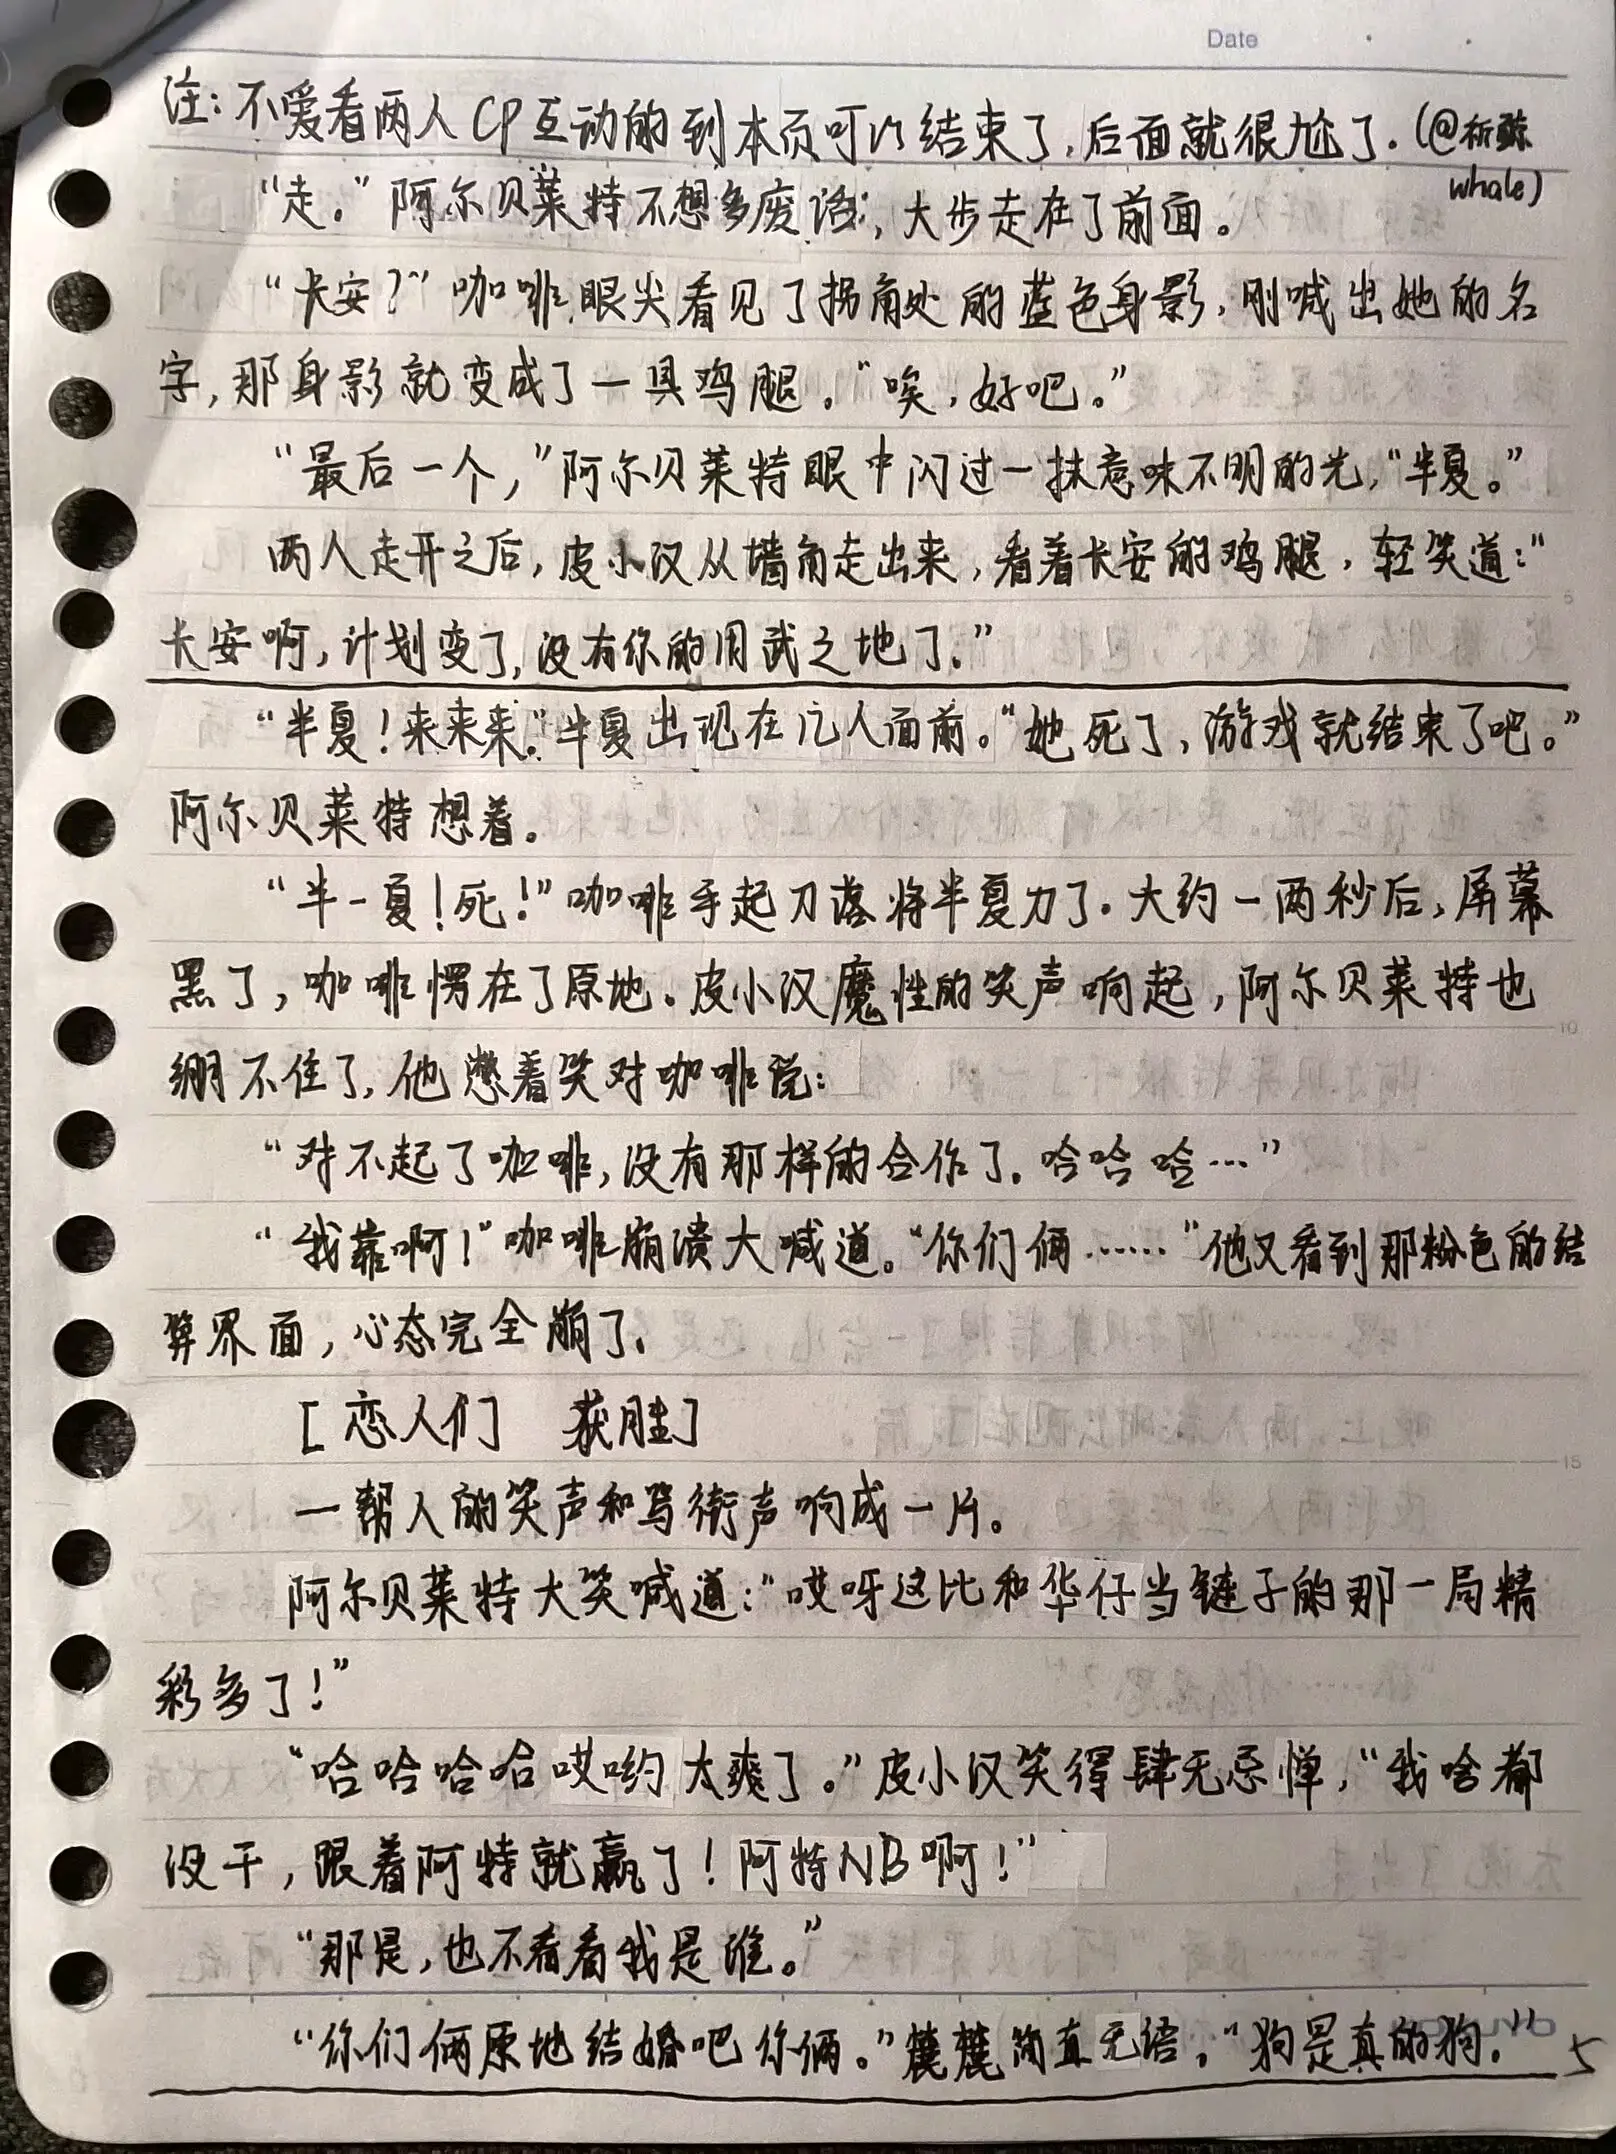 Date
注：不爱看两人CP互动的到本页可以结束了，后面就很尬了.（@祈鲸
whale）
“走。”阿尔贝莱特不想多废话，大步走在了前面。
“长安？”咖啡眼尖看见了拐角处的蓝色身影，刚喊出她的名
字，那身影就变成了一具鸡腿。“唉，好吧。”
“最后一个，”阿尔贝莱特眼中闪过一抹意味不明的光，“半夏。”
两人走开之后，皮小汉从墙角走出来，看着长安的鸡腿，轻笑道：“
长安啊，计划变了，没有你的用武之地了。”
“半夏！来来来。”半夏出现在几人面前。“她死了，游戏就结束了吧。”
阿尔贝莱特想着。
“半-夏！死！”咖啡手起刀落将半夏刀了.大约一两秒后，屏幕
黑了，咖啡愣在了原地。皮小汉魔性的笑声响起，阿尔贝莱特也
绷不住了，他憋着笑对咖啡说：
“对不起了咖啡，没有那样的合作了.哈哈哈…”
“我靠啊！”咖啡崩溃大喊道。“你们俩……”他又看到那粉色的结
算界面，心态完全崩了.
[恋人们 获胜]
一帮人的笑声和骂街声响成一片。
阿尔贝莱特大笑喊道：“哎呀这比和华仔当链子的那一局精
彩多了！”
“哈哈哈哈哎哟太爽了。”皮小汉笑得肆无忌惮，“我啥都
没干，跟着阿特就赢了！阿特NB啊！”
“那是，也不看看我是谁。”
“你们俩原地结婚吧你俩。”麓麓简直无语，“狗是真的狗.”
5